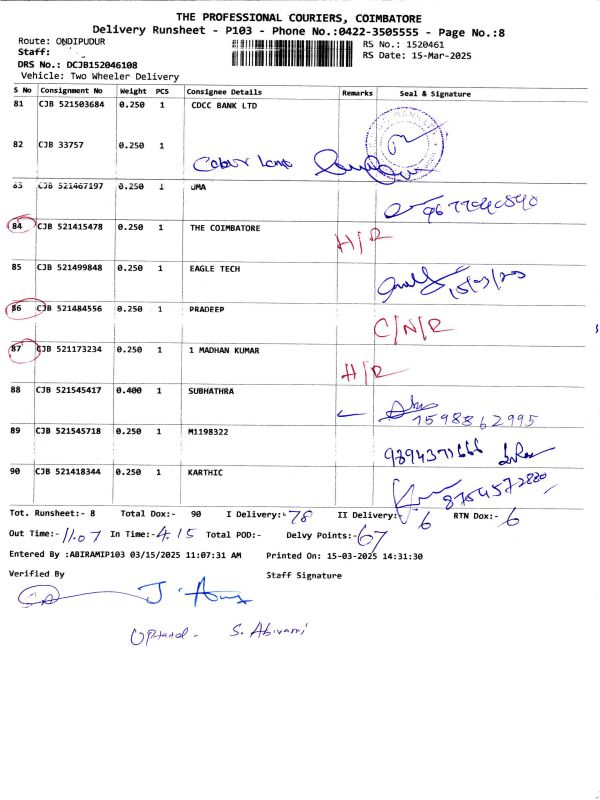 THE PROFESSIONAL COURIERS, COIMBATORE
Delivery Runsheet - P103 - Phone No.:0422-3505555 - Page No.:8
Route: ONDIPUDUR
RS No.: 1520461
Staff:
RS Date: 15-Mar-2025
DRS No.: DCJB152046108
Vehicle: Two Wheeler Delivery
S No Consignment No Weight PCS Consignee Details Remarks Seal & Signature
81 CJB 521503684 0.250 1 CDCC BANK LTD
82 CJB 33757 0.250 1
83 CJB 521467197 0.250 1 UMA
84 CJB 521415478 0.250 1 THE COIMBATORE H/R
85 CJB 521499848 0.250 1 EAGLE TECH
86 CJB 521484556 0.250 1 PRADEEP C/N/R
87 CJB 521173234 0.250 1 1 MADHAN KUMAR H/R
88 CJB 521545417 0.400 1 SUBHATHRA 7598862995
89 CJB 521545718 0.250 1 M1198322
90 CJB 521418344 0.250 1 KARTHIC 8754572880
Tot. Runsheet:- 8 Total Dox:- 90 I Delivery:- 78 II Delivery:- 6 RTN Dox:- 6
Out Time:- 11.07 In Time:- 4.15 Total POD:- Delvy Points:- 67
Entered By :ABIRAMIP103 03/15/2025 11:07:31 AM Printed On: 15-03-2025 14:31:30
Verified By Staff Signature
S. Abirami